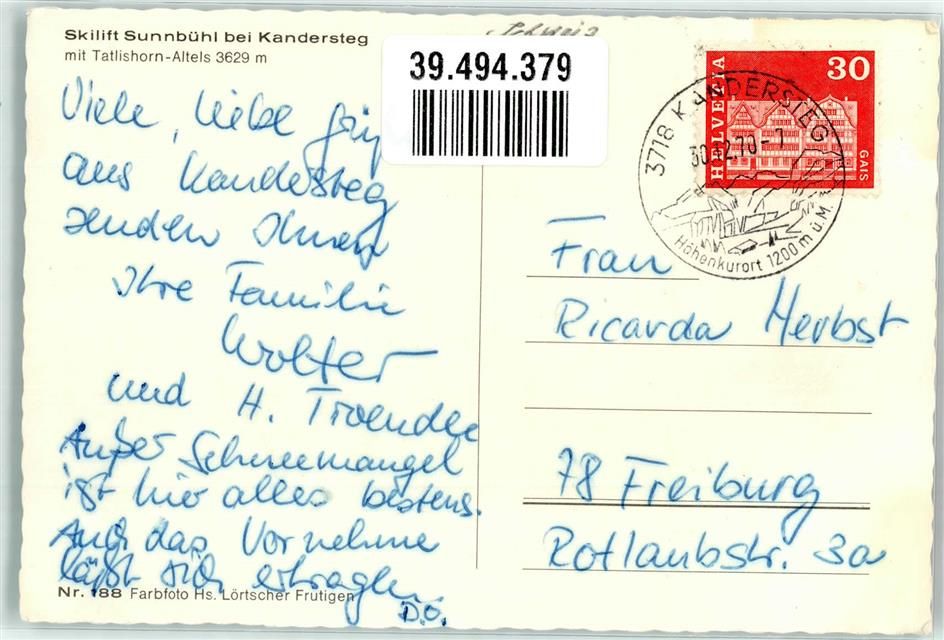 Skilift Sunnbühl bei Kandersteg
mit Tatlishorn-Altels 3629 m
Schweiz
39.494.379
Viele, liebe
aus Kandersteg
senden Ihnen
Ihre Familie
Wolter
und H. Troendle
Außer Schneemangel
ist hier alles bestens.
Auch das Vornehme
läßt sich ertragen.
D.O.
Nr. 188 Farbfoto Hs. Lörtscher Frutigen
HELVETIA
30
GAIS
3718 KANDERSTEG
Höhenkurort 1200 m ü.M.
Frau
Ricarda Herbst
78 Freiburg
Rotlaubstr. 3a